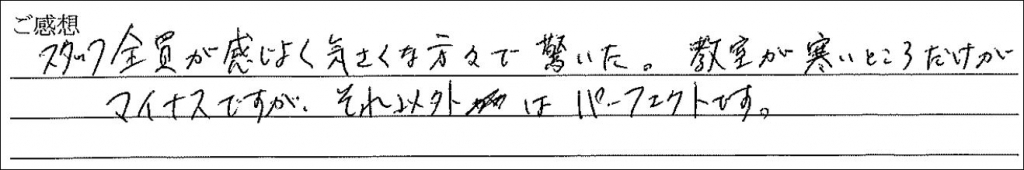 ご感想
スタッフ全員が感じよく気さくな方々で驚いた。教室が寒いところだけが
マイナスですが、それ以外はパーフェクトです。